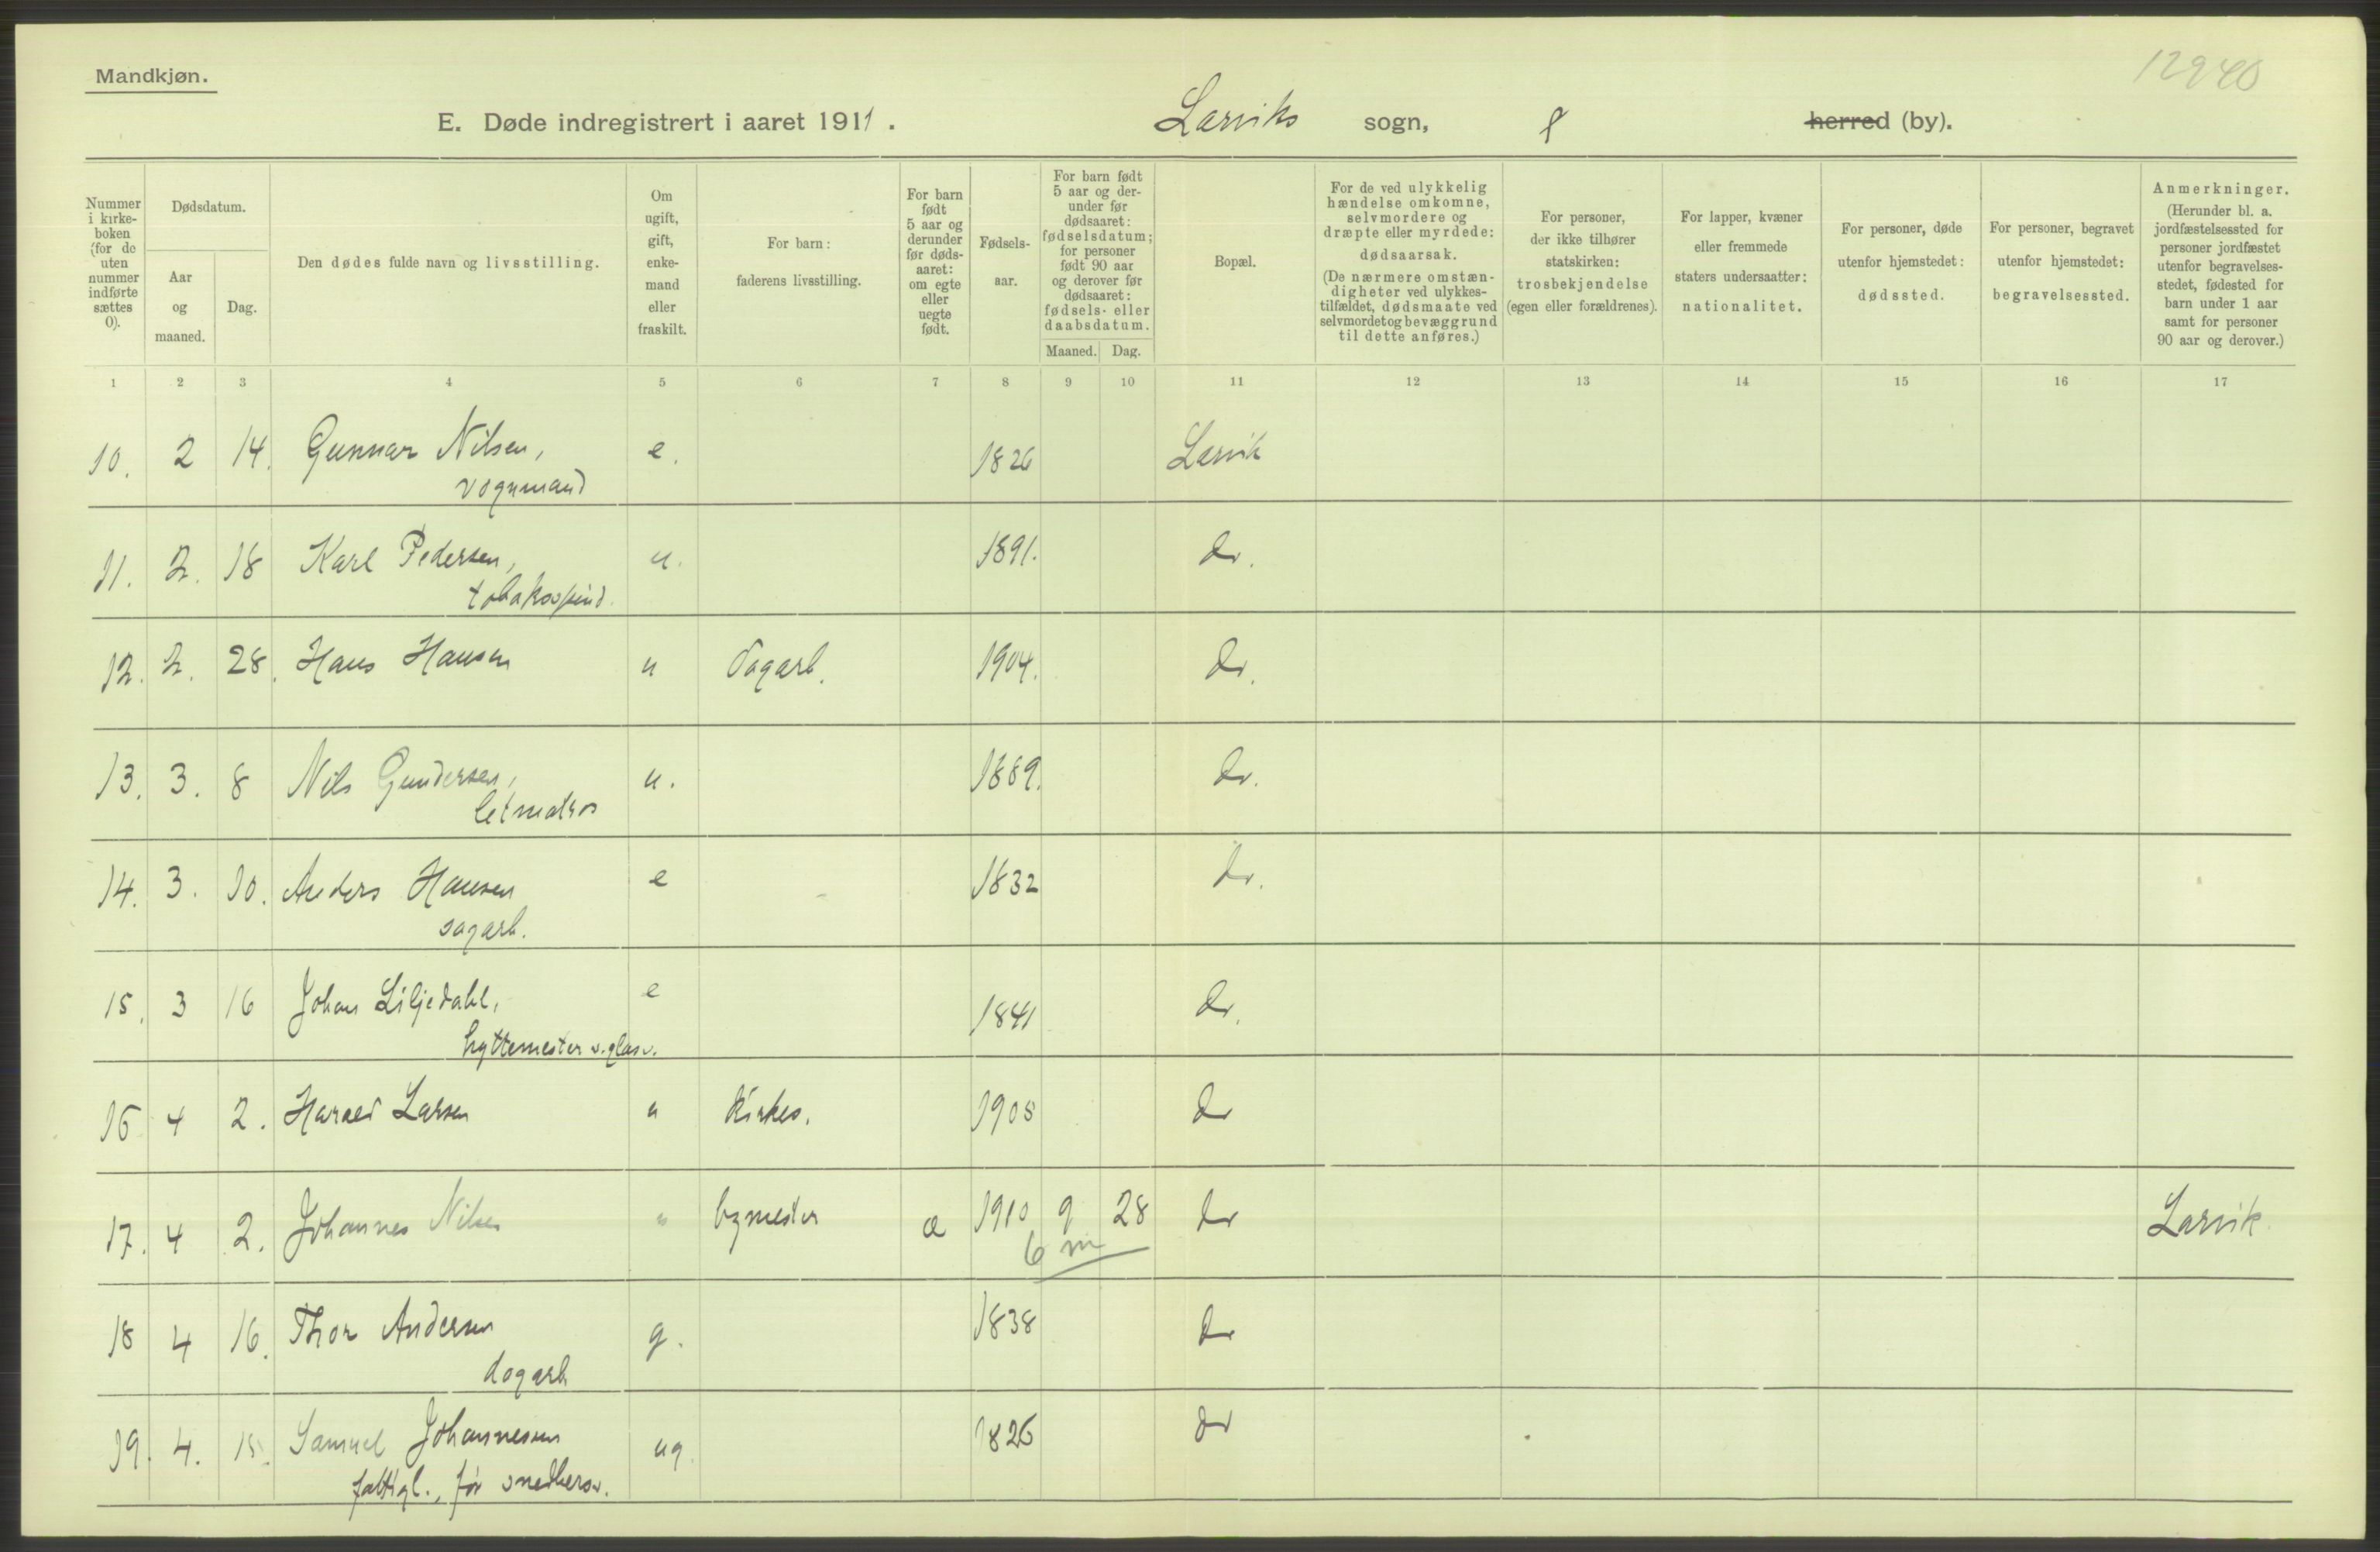 12940
Mandkjøn.
E. Døde indregistrert i aaret 1911. Larviks sogn, herred (by).
Nummer i kirkeboken (for de uten nummer indførte sættes 0).
Dødsdatum.
Aar og maaned.
Dag.
Den dødes fulde navn og livsstilling.
Om ugift, gift, enkemand eller fraskilt.
For barn: faderens livsstilling.
For barn født 5 aar og derunder før dødsaaret: om egte eller uegte født.
Fødselsaar.
For barn født 5 aar og derunder før dødsaaret: fødselsdatum; for personer født 90 aar og derover før dødsaaret: fødsels- eller daabsdatum.
Maaned. Dag.
Bopæl.
For de ved ulykkelig hændelse omkomne, selvmordere og dræpte eller myrdede: dødsaarsak.
(De nærmere omstændigheter ved ulykkestilfældet, dødsmaate ved selvmordet og bevæggrund til dette anføres.)
For personer, der ikke tilhører statskirken: trosbekjendelse (egen eller forældrenes).
For lapper, kvæner eller fremmede staters undersaatter: nationalitet.
For personer, døde utenfor hjemstedet: dødssted.
For personer, begravet utenfor hjemstedet: begravelsessted.
Anmerkninger.
(Herunder bl. a. jordfæstelsessted for personer jordfæstet utenfor begravelsesstedet, fødested for barn under 1 aar samt for personer 90 aar og derover.)
1 2 3 4 5 6 7 8 9 10 11 12 13 14 15 16 17
10. 2 14. Gunnar Nilsen, e. 1826 Larvik
vognmand
11. 2. 18 Karl Pedersen, u. 1891. do.
tobaksspind.
12. 2. 28. Hans Hansen u dagarb. 1904. do.
13. 3. 8 Nils Gundersen, u. 1889. do.
letmatros
14. 3. 10. Anders Hansen e 1832 do.
sagarb.
15. 3 16 Johan Liljedahl, e 1841 do.
hyttemester v. glasv.
16 4 2. Harald Larsen u 1905 do
17. 4 2. Johannes Nilsen u bymester æ 1910 9 28 do Larvik.
6 m
18 4 16. Thor Andersen g. 1838 do
dagarb
19. 4. 15. Samuel Johannesen ug. 1826 do
fattigl., før snedkersv.